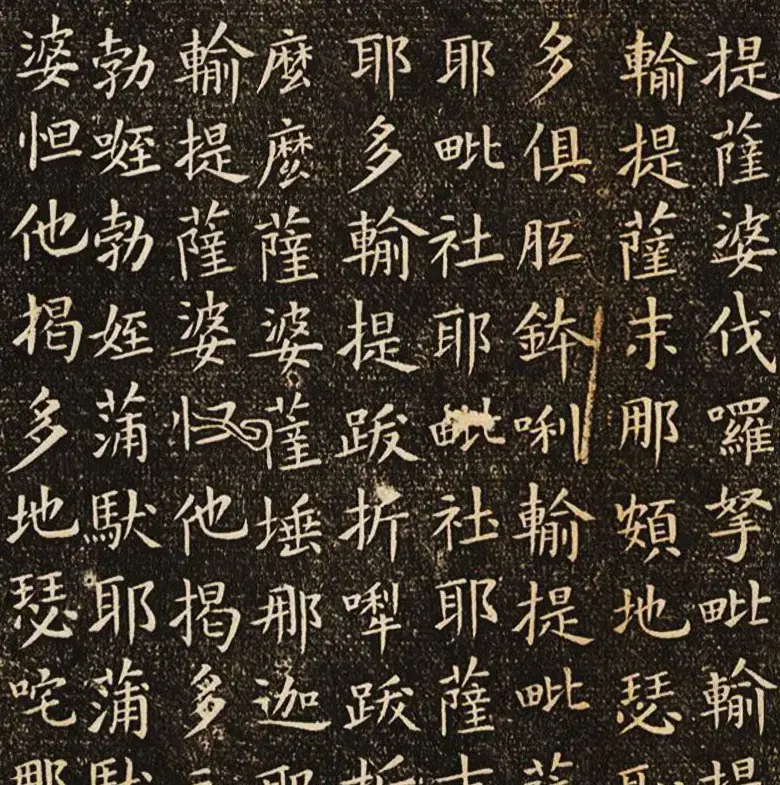 提薩婆伐囉拏毗輸提
輸提薩末那頞地瑟
多俱胝鉢唎輸提毗薩
耶毗社耶毗社耶薩
耶多輸提跋折㗚跋折
麼麼薩婆薩埵那迦耶
輸提薩婆怛他揭多
勃㗌勃姪蒲馱耶蒲馱
婆怛他揭多地瑟咤那